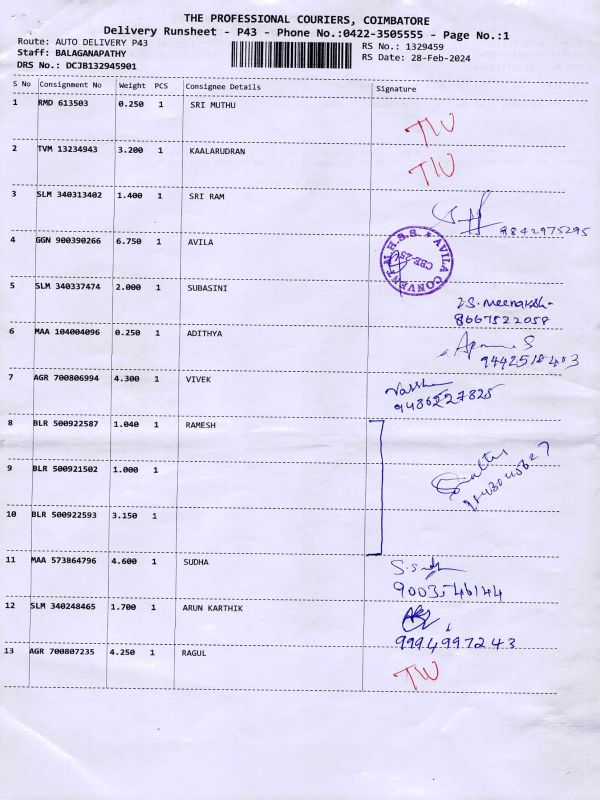 THE PROFESSIONAL COURIERS, COIMBATORE
Delivery Runsheet - P43 - Phone No.:0422-3505555 - Page No.:1
Route: AUTO DELIVERY P43
RS No.: 1329459
Staff: BALAGANAPATHY
RS Date: 28-Feb-2024
DRS No.: DCJB132945901
S No Consignment No Weight PCS Consignee Details Signature
1 RMD 613503 0.250 1 SRI MUTHU
2 TVM 13234943 3.200 1 KAALARUDRAN
3 SLM 340313402 1.400 1 SRI RAM
9842975295
4 GGN 900390266 6.750 1 AVILA
AVILA CONVENT M.H.S.S. ★ CBE-25
5 SLM 340337474 2.000 1 SUBASINI
8667522058
6 MAA 104004096 0.250 1 ADITHYA
9442518403
7 AGR 700806994 4.300 1 VIVEK
9486227825
8 BLR 500922587 1.040 1 RAMESH
9 BLR 500921502 1.000 1
10 BLR 500922593 3.150 1
11 MAA 573864796 4.600 1 SUDHA
12 SLM 340248465 1.700 1 ARUN KARTHIK
9994997243
13 AGR 700807235 4.250 1 RAGUL